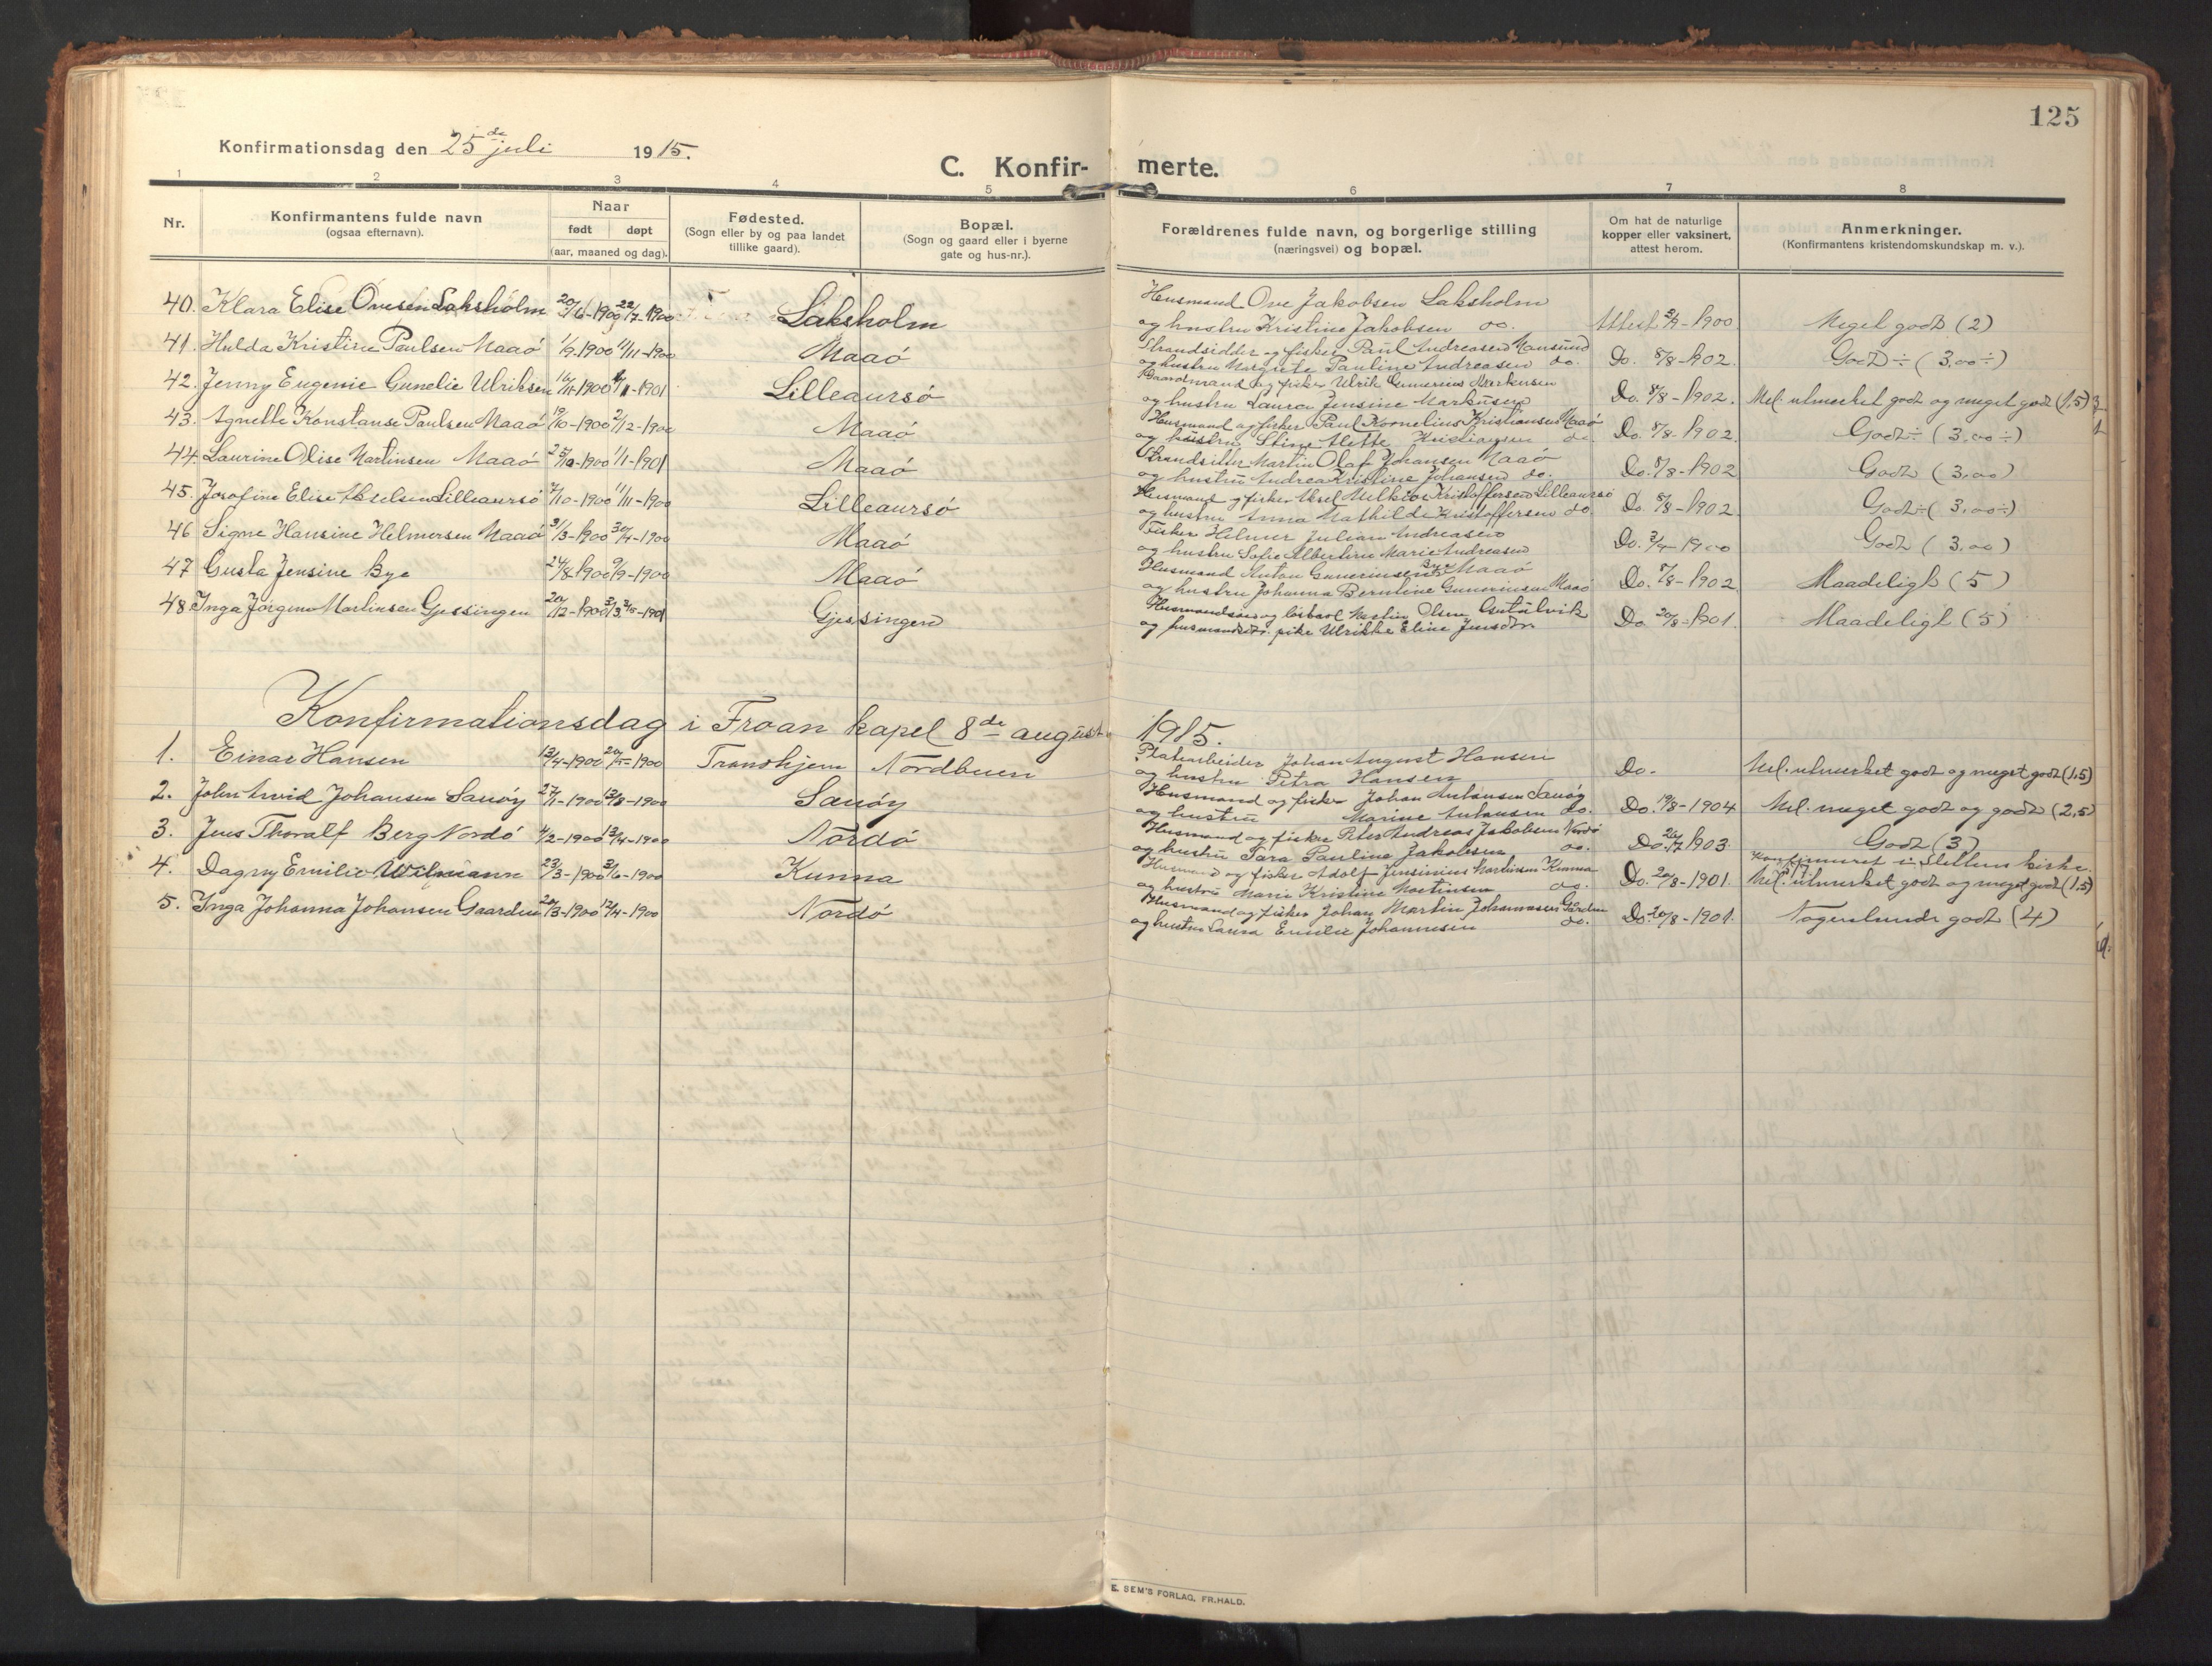 125
Konfirmationsdag den 25de juli 1915.
C. Konfir- merte.
1 2 3 4 5 6 7 8
Nr.
Konfirmantens fulde navn
(ogsaa efternavn).
Naar
født døpt
(aar, maaned og dag).
Fødested.
(Sogn eller by og paa landet
tillike gaard).
Bopæl.
(Sogn og gaard eller i byerne
gate og hus-nr.).
Forældrenes fulde navn, og borgerlige stilling
(næringsvei) og bopæl.
Om hat de naturlige
kopper eller vaksinert,
attest herom.
Anmerkninger.
(Konfirmantens kristendomskundskap m. v.).
40. Klara Elise Ovesen Laksholm 20/6-1900 22/7-1900 Laksholm
Husmand Ove Jakobsen Laksholm
og hustru Kristine Jakobsen do. Attest -1900 Meget godt (2)
41. Hulda Kristine Paulsen Maaø 1/9-1900 11/11-1900 Maaø
Strandsidder og fisker Paul Andreasen Mausund
og hustru Margrete Pauline Andreasen do. Do. 8/8-1902 Godt ÷ (3,00÷)
42. Jenny Eugenie Gunelie Ulriksen 16/11-1900 1/1-1901 Lilleaursø
Gaardmand og fisker Ulrik Gunerius Markussen
og hustru Laura Jensine Markusen Do. 8/8-1902. Mel. utmerket godt og meget godt (1,5)
43. Agnette Konstanse Paulsen Maaø 19/10-1900 2/12-1900 Maaø
Husmand og fisker Paul Kornelius Kristiansen Maaø
og hustru Stine Alette Kristiansen do. Do. 8/8-1902 Godt ÷ (3,00÷)
44. Laurine Olise Martinsen Maaø 25/10-1900 1/1-1901 Maaø
Strandsitter Martin Olaf Johansen Maaø
og hustru Andrea Kristine Johansen do. Do. 8/8-1902 Godt (3,00)
45. Josofine Elise Akselsen Lilleaursø 7/10-1900 11/11-1900 Lilleaursø
Husmand og fisker Aksel Melkior Kristoffersen Lilleaursø
og hustru Anna Mathilde Kristoffersen do Do 8/8-1902 Godt÷ (3,00÷)
46 Signe Hansine Helmersen Maaø 31/3-1900 30/4-1900 Maaø
Fisker Helmer Julian Andreasen
og hustru Sofie Albertine Marie Andreasen Do. -1900 Godt (3,00)
47 Gusta Jensine Bye 24/8-1900 9/9-1900 Maaø
Husmand Anton Gunerinsen Bye Maaø
og hustru Johanna Berntine Gunerinsen Maaø Do. 8/8-1902 Maadeligt (5)
48 Inga Jørgine Martinsen Gjessingen 20/12-1900 31/3-1901 Gjessingen
Husmandssøn og Martin Olsen
og pike Ulrikke Eline Jensdtr. Do. 20/8-1901. Maadeligt (5)
Konfirmationsdag i Froan kapel 8de august 1915.
1. Einar Hansen 13/4-1900 20/5-1900 Trondhjem Nordbuen
Platearbeider Johan August Hansen
og hustru Petra Hansen Do. Mel. utmerket godt og meget godt (1,5)
2. John Arvid Johansen Sauøy 27/1-1900 13/3-1900 Sauøy
Husmand og fisker Johan Antonsen Sauøy
og hustru Marine Antonsen do. Do. 19/8-1904 Mel. meget godt og godt (2,5)
3. Jens Thoralf Berg Nordø 4/2-1900 13/4-1900 Nordø
Husmand og fisker Peter Andreas Jakobsen Nordø
og hustru Sara Pauline Jakobsen do. Do. 1903. Godt (3)
4. Dagny Emilie Wilmann 23/3-1900 3/6-1900 Kunna
Husmand og fisker Adolf Jensinius Martinsen Kunna
og hustru Marie Kristine Martinsen do. Do. 20/8-1901. Konfirmeret i Slettens kirke
Mel. utmerket godt og meget godt (1,5)
5. Inga Johanna Johansen Gaarden 20/3-1900 12/4-1900 Nordø
Husmand og fisker Johan Martin Johannesen Gården
og hustru Laura Emilie Johannesen do. Do. 20/8-1901. Nogenlunde godt (4)
E. SEM'S FORLAG, FR.HALD.